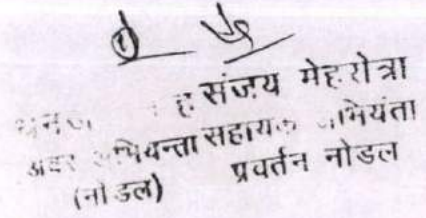 संजय मेहरोत्रा
अवर अभियन्ता सहायक अभियंता
(नोडल) प्रवर्तन नोडल